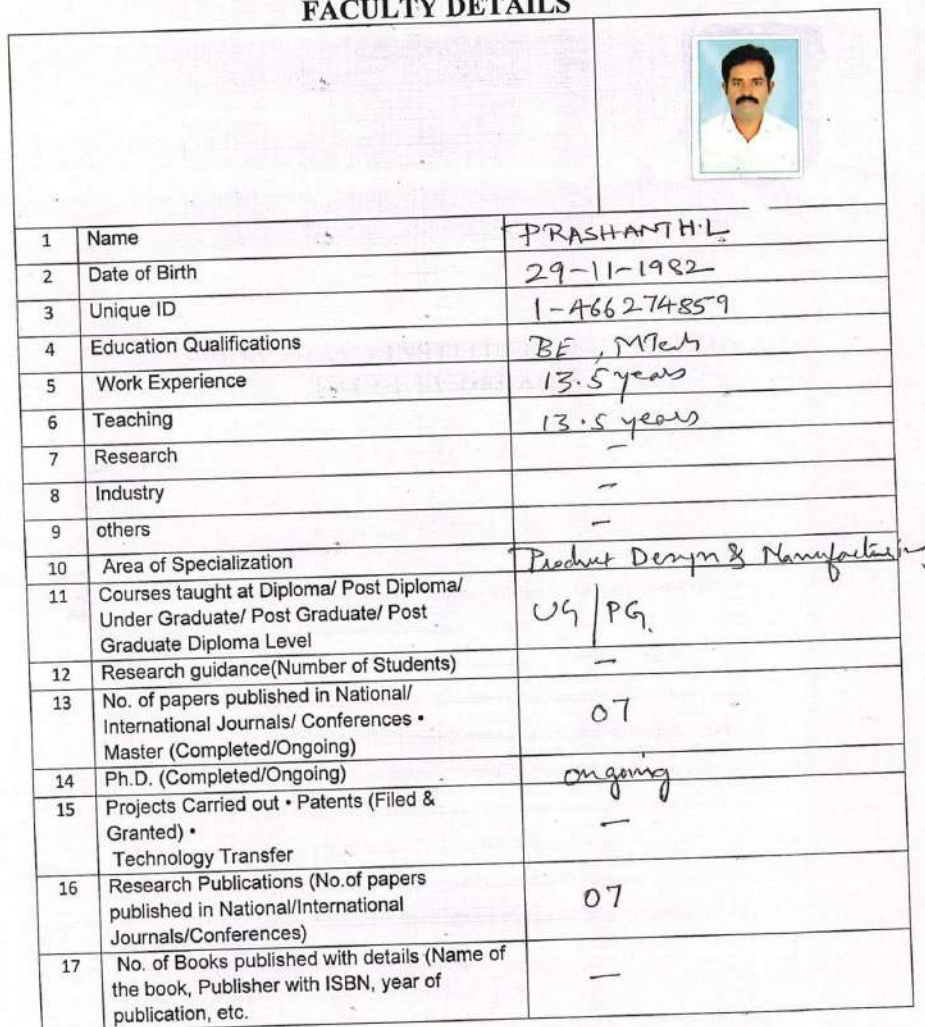 FACULTY DETAILS
1 Name PRASHANTH.L
2 Date of Birth 29-11-1982
3 Unique ID 1-466274859
4 Education Qualifications BE, MTech
5 Work Experience 13.5 years
6 Teaching 13.5 years
7 Research -
8 Industry -
9 others -
10 Area of Specialization Product Design & Manufacturing
11 Courses taught at Diploma/ Post Diploma/
Under Graduate/ Post Graduate/ Post UG | PG.
Graduate Diploma Level
12 Research guidance(Number of Students) -
13 No. of papers published in National/
International Journals/ Conferences • 07
Master (Completed/Ongoing)
14 Ph.D. (Completed/Ongoing) ongoing
15 Projects Carried out • Patents (Filed &
Granted) • -
Technology Transfer
16 Research Publications (No.of papers
published in National/International 07
Journals/Conferences)
17 No. of Books published with details (Name of
the book, Publisher with ISBN, year of -
publication, etc.